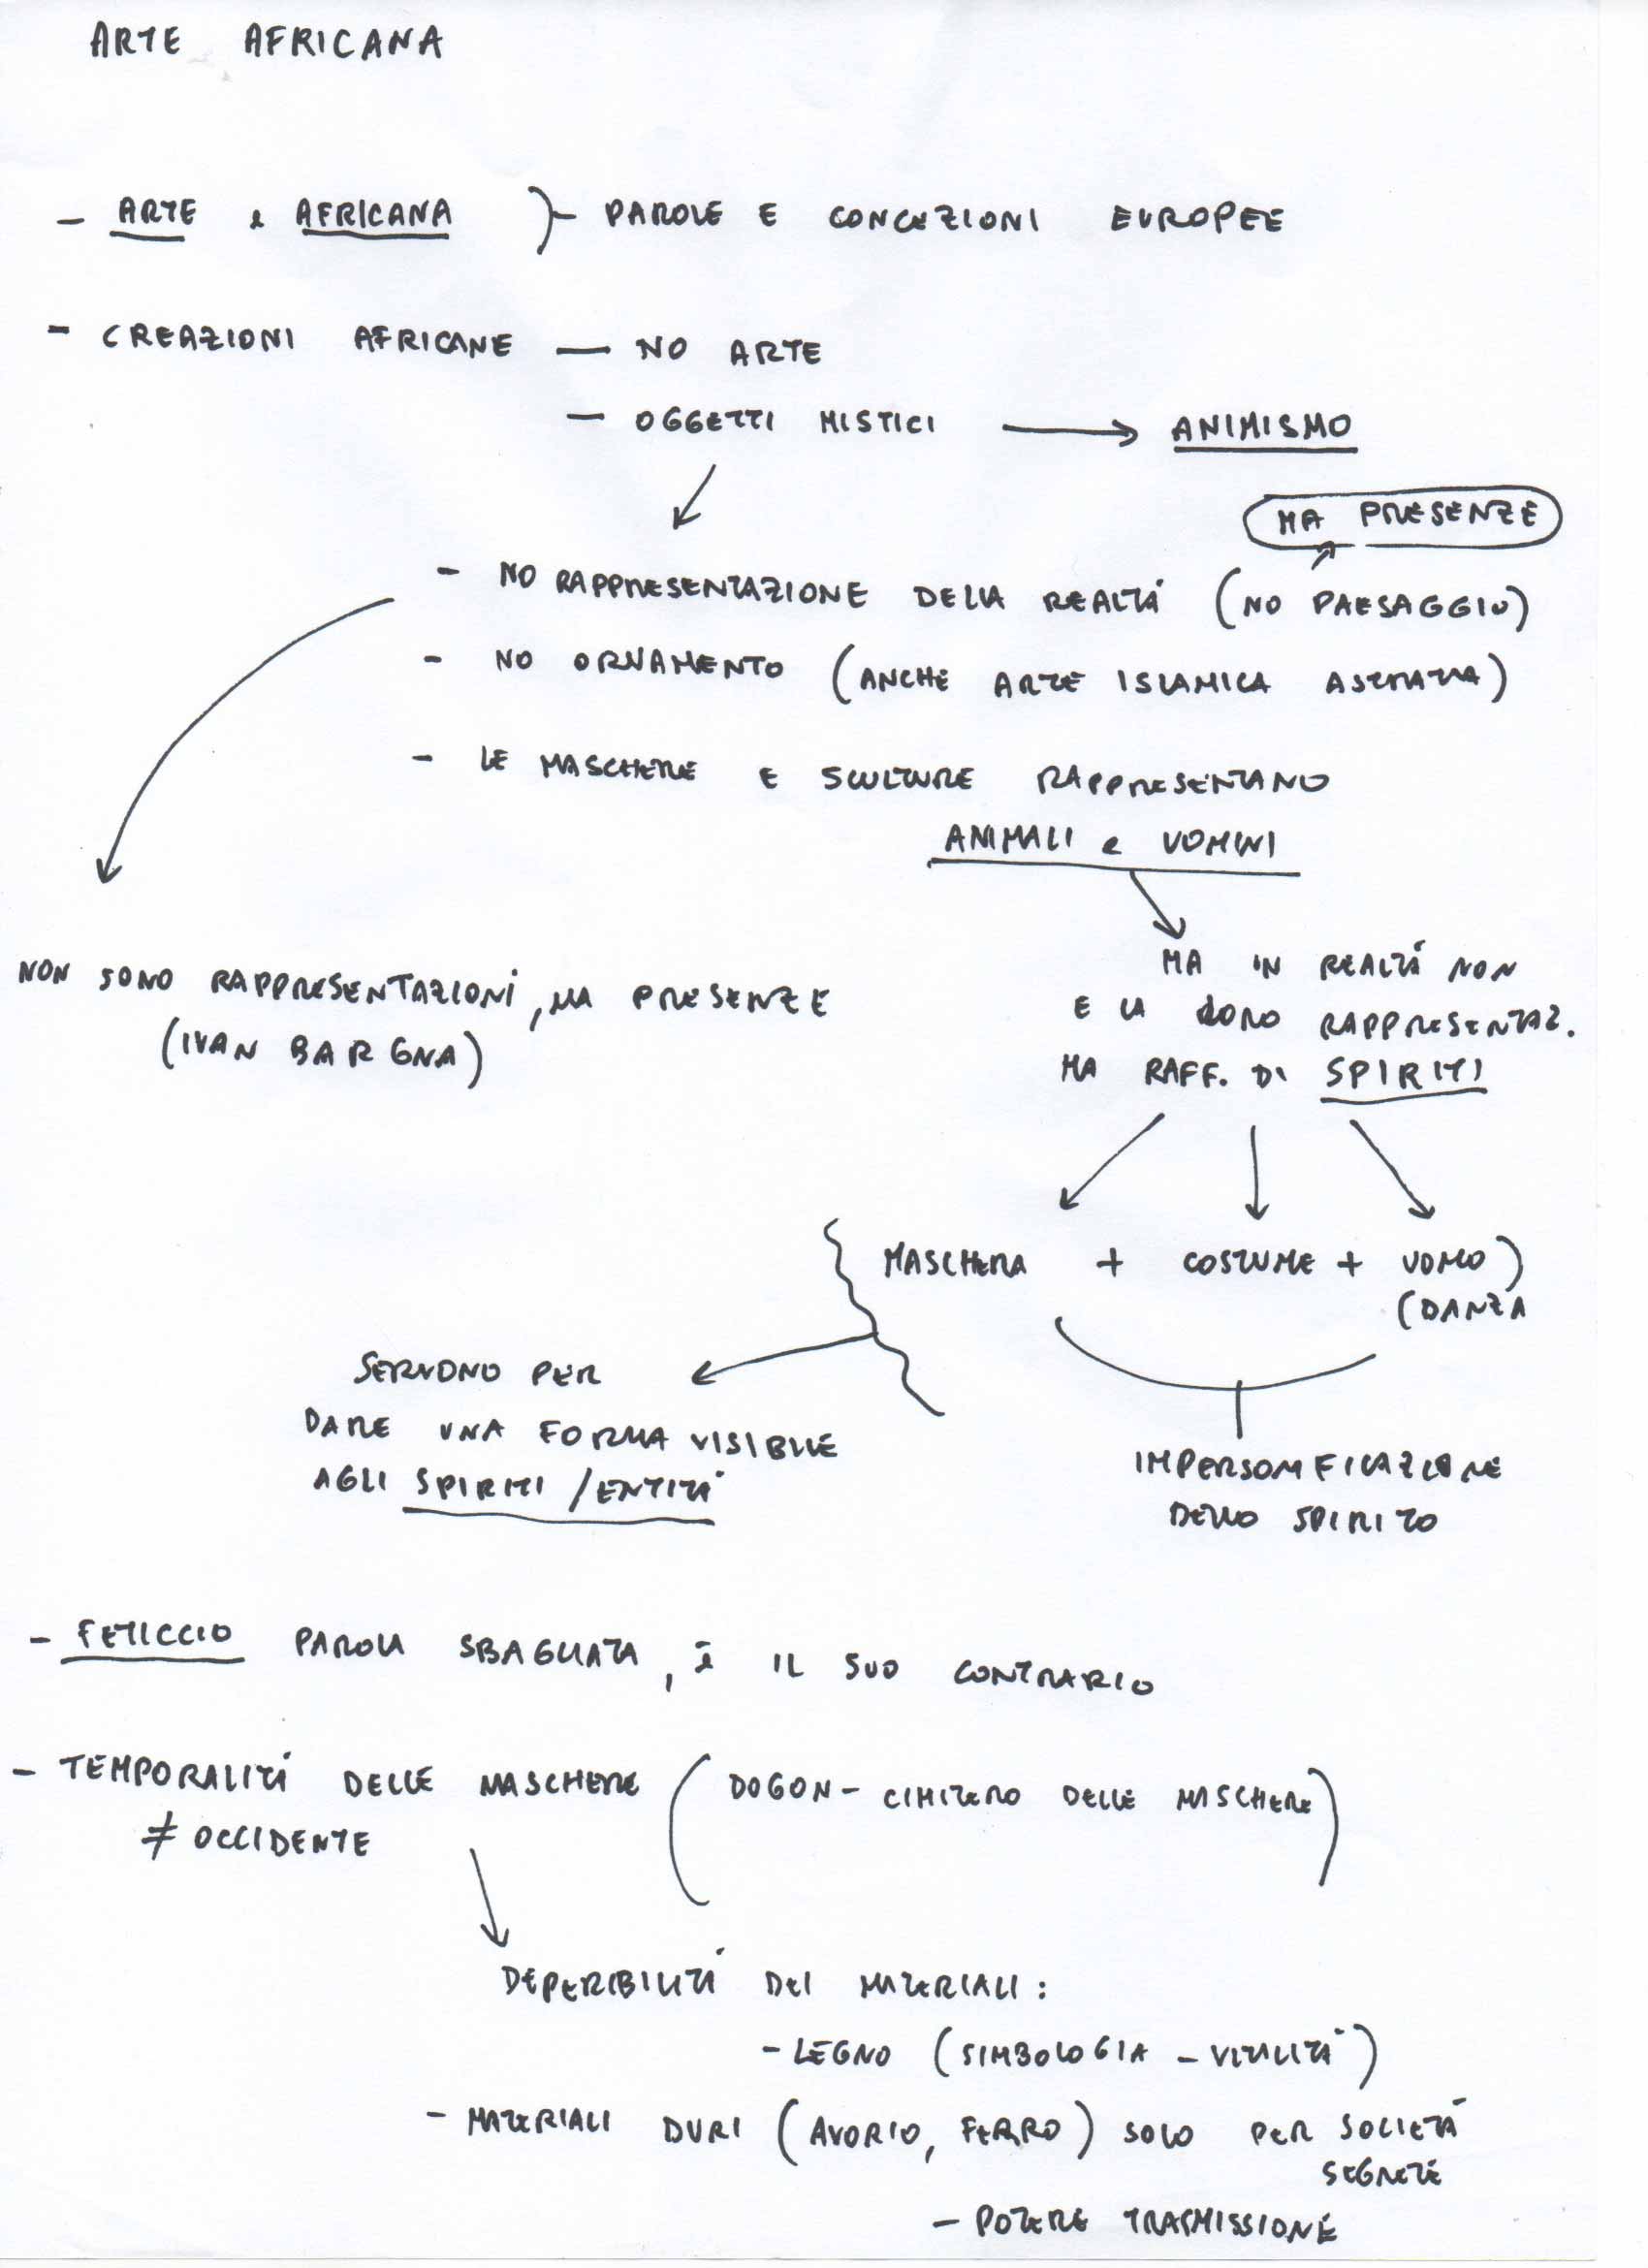 ARTE AFRICANA
- ARTE e AFRICANA )- PAROLE E CONCEZIONI EUROPEE
- CREAZIONI AFRICANE — NO ARTE
- OGGETTI MISTICI → ANIMISMO
MA PRESENZE
- NO RAPPRESENTAZIONE DELLA REALTÀ (NO PAESAGGIO)
- NO ORNAMENTO (ANCHE ARTE ISLAMICA ASTRATTA)
- LE MASCHERE E SCULTURE RAPPRESENTANO
ANIMALI e UOMINI
MA IN REALTÀ NON
E LA LORO RAPPRESENTAZ.
MA RAFF. DI SPIRITI
NON SONO RAPPRESENTAZIONI, MA PRESENZE
(IVAN BARGNA)
MASCHERA + COSTUME + UOMO)
(DANZA
SERVONO PER
DARE UNA FORMA VISIBILE
AGLI SPIRITI / ENTITÀ
IMPERSONIFICAZIONE
DELLO SPIRITO
- FETICCIO PAROLA SBAGLIATA, È IL SUO CONTRARIO
- TEMPORALITÀ DELLE MASCHERE (DOGON - CIMITERO DELLE MASCHERE)
≠ OCCIDENTE
DEPERIBILITÀ DEI MATERIALI:
- LEGNO (SIMBOLOGIA - VITALITÀ)
- MATERIALI DURI (AVORIO, FERRO) SOLO PER SOCIETÀ
SEGRETE
- POTERE TRASMISSIONE